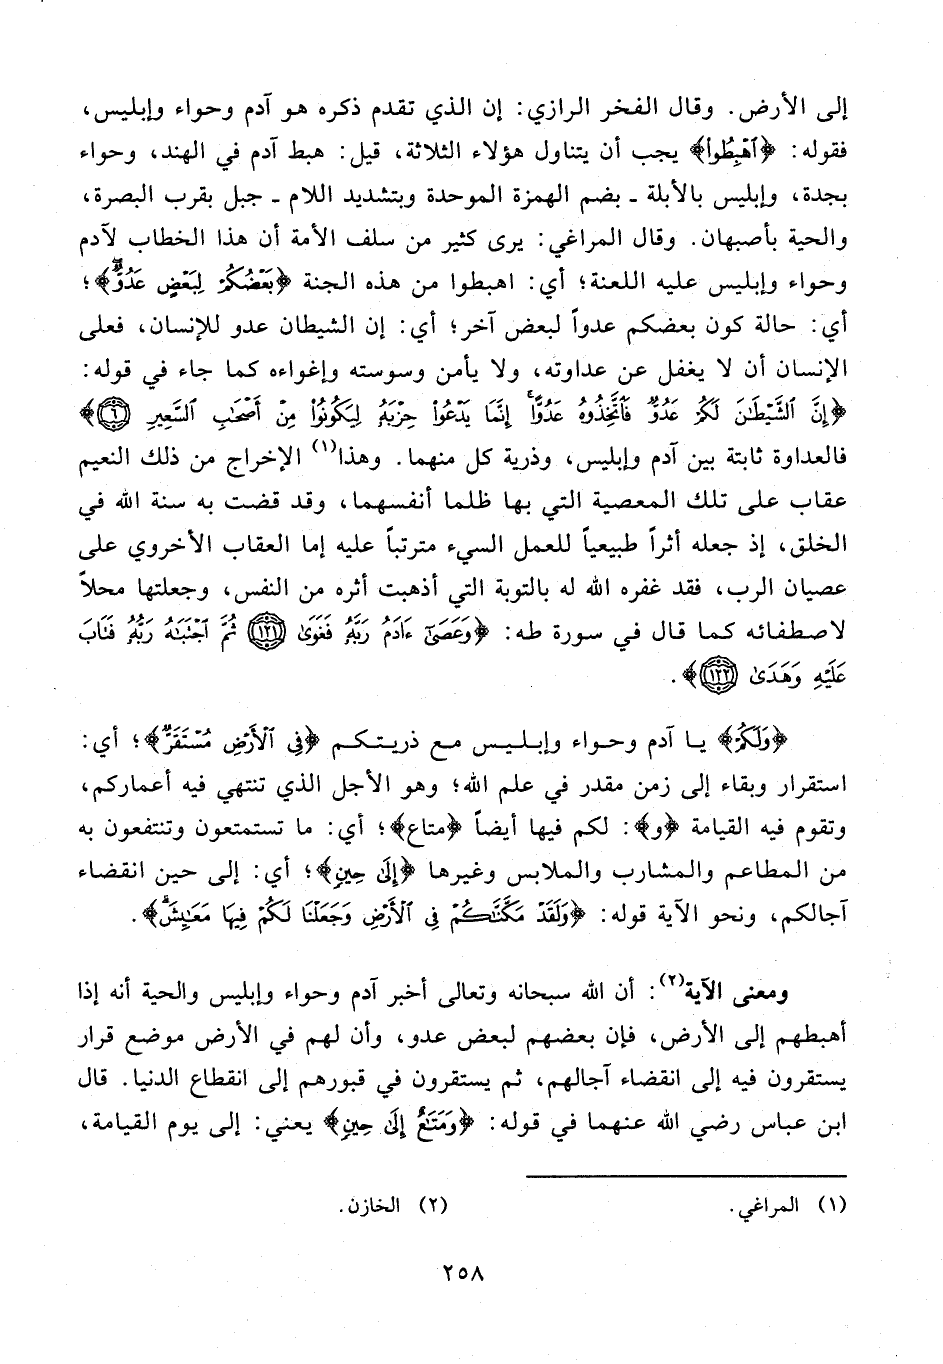 إلى الأرض. وقال الفخر الرازي: إن الذي تقدم ذكره هو آدم وحواء وإبليس،
فقوله: ﴿ٱهْبِطُوا۟﴾ يجب أن يتناول هؤلاء الثلاثة، قيل: هبط آدم في الهند، وحواء
بجدة، وإبليس بالأبلة ـ بضم الهمزة الموحدة وبتشديد اللام ـ جبل بقرب البصرة،
والحية بأصبهان. وقال المراغي: يرى كثير من سلف الأمة أن هذا الخطاب لآدم
وحواء وإبليس عليه اللعنة؛ أي: اهبطوا من هذه الجنة ﴿بَعْضُكُمْ لِبَعْضٍ عَدُوٌّ ۖ﴾؛
أي: حالة كون بعضكم عدواً لبعض آخر؛ أي: إن الشيطان عدو للإنسان، فعلى
الإنسان أن لا يغفل عن عداوته، ولا يأمن وسوسته وإغواءه كما جاء في قوله:
﴿إِنَّ ٱلشَّيْطَٰنَ لَكُمْ عَدُوٌّ فَٱتَّخِذُوهُ عَدُوًّا ۚ إِنَّمَا يَدْعُوا۟ حِزْبَهُۥ لِيَكُونُوا۟ مِنْ أَصْحَٰبِ ٱلسَّعِيرِ ٦﴾
فالعداوة ثابتة بين آدم وإبليس، وذرية كل منهما. وهذا(١) الإخراج من ذلك النعيم
عقاب على تلك المعصية التي بها ظلما أنفسهما، وقد قضت به سنة الله في
الخلق، إذ جعله أثراً طبيعياً للعمل السيء مترتباً عليه إما العقاب الأخروي على
عصيان الرب، فقد غفره الله له بالتوبة التي أذهبت أثره من النفس، وجعلتها محلاً
لاصطفائه كما قال في سورة طه: ﴿وَعَصَىٰٓ ءَادَمُ رَبَّهُۥ فَغَوَىٰ ١٢١ ثُمَّ ٱجْتَبَٰهُ رَبُّهُۥ فَتَابَ
عَلَيْهِ وَهَدَىٰ ١٢٢﴾.
﴿وَلَكُمْ﴾ يا آدم وحواء وإبليس مع ذريتكم ﴿فِى ٱلْأَرْضِ مُسْتَقَرٌّ﴾؛ أي:
استقرار وبقاء إلى زمن مقدر في علم الله؛ وهو الأجل الذي تنتهي فيه أعماركم،
وتقوم فيه القيامة ﴿و﴾: لكم فيها أيضاً ﴿متاع﴾؛ أي: ما تستمتعون وتنتفعون به
من المطاعم والمشارب والملابس وغيرها ﴿إِلَىٰ حِينٍ﴾؛ أي: إلى حين انقضاء
آجالكم، ونحو الآية قوله: ﴿وَلَقَدْ مَكَّنَّٰكُمْ فِى ٱلْأَرْضِ وَجَعَلْنَا لَكُمْ فِيهَا مَعَٰيِشَ ۗ﴾.
ومعنى الآية(٢): أن الله سبحانه وتعالى أخبر آدم وحواء وإبليس والحية أنه إذا
أهبطهم إلى الأرض، فإن بعضهم لبعض عدو، وأن لهم في الأرض موضع قرار
يستقرون فيه إلى انقضاء آجالهم، ثم يستقرون في قبورهم إلى انقطاع الدنيا. قال
ابن عباس رضي الله عنهما في قوله: ﴿وَمَتَٰعٌ إِلَىٰ حِينٍ﴾ يعني: إلى يوم القيامة،
(١) المراغي. (٢) الخازن.
٢٥٨